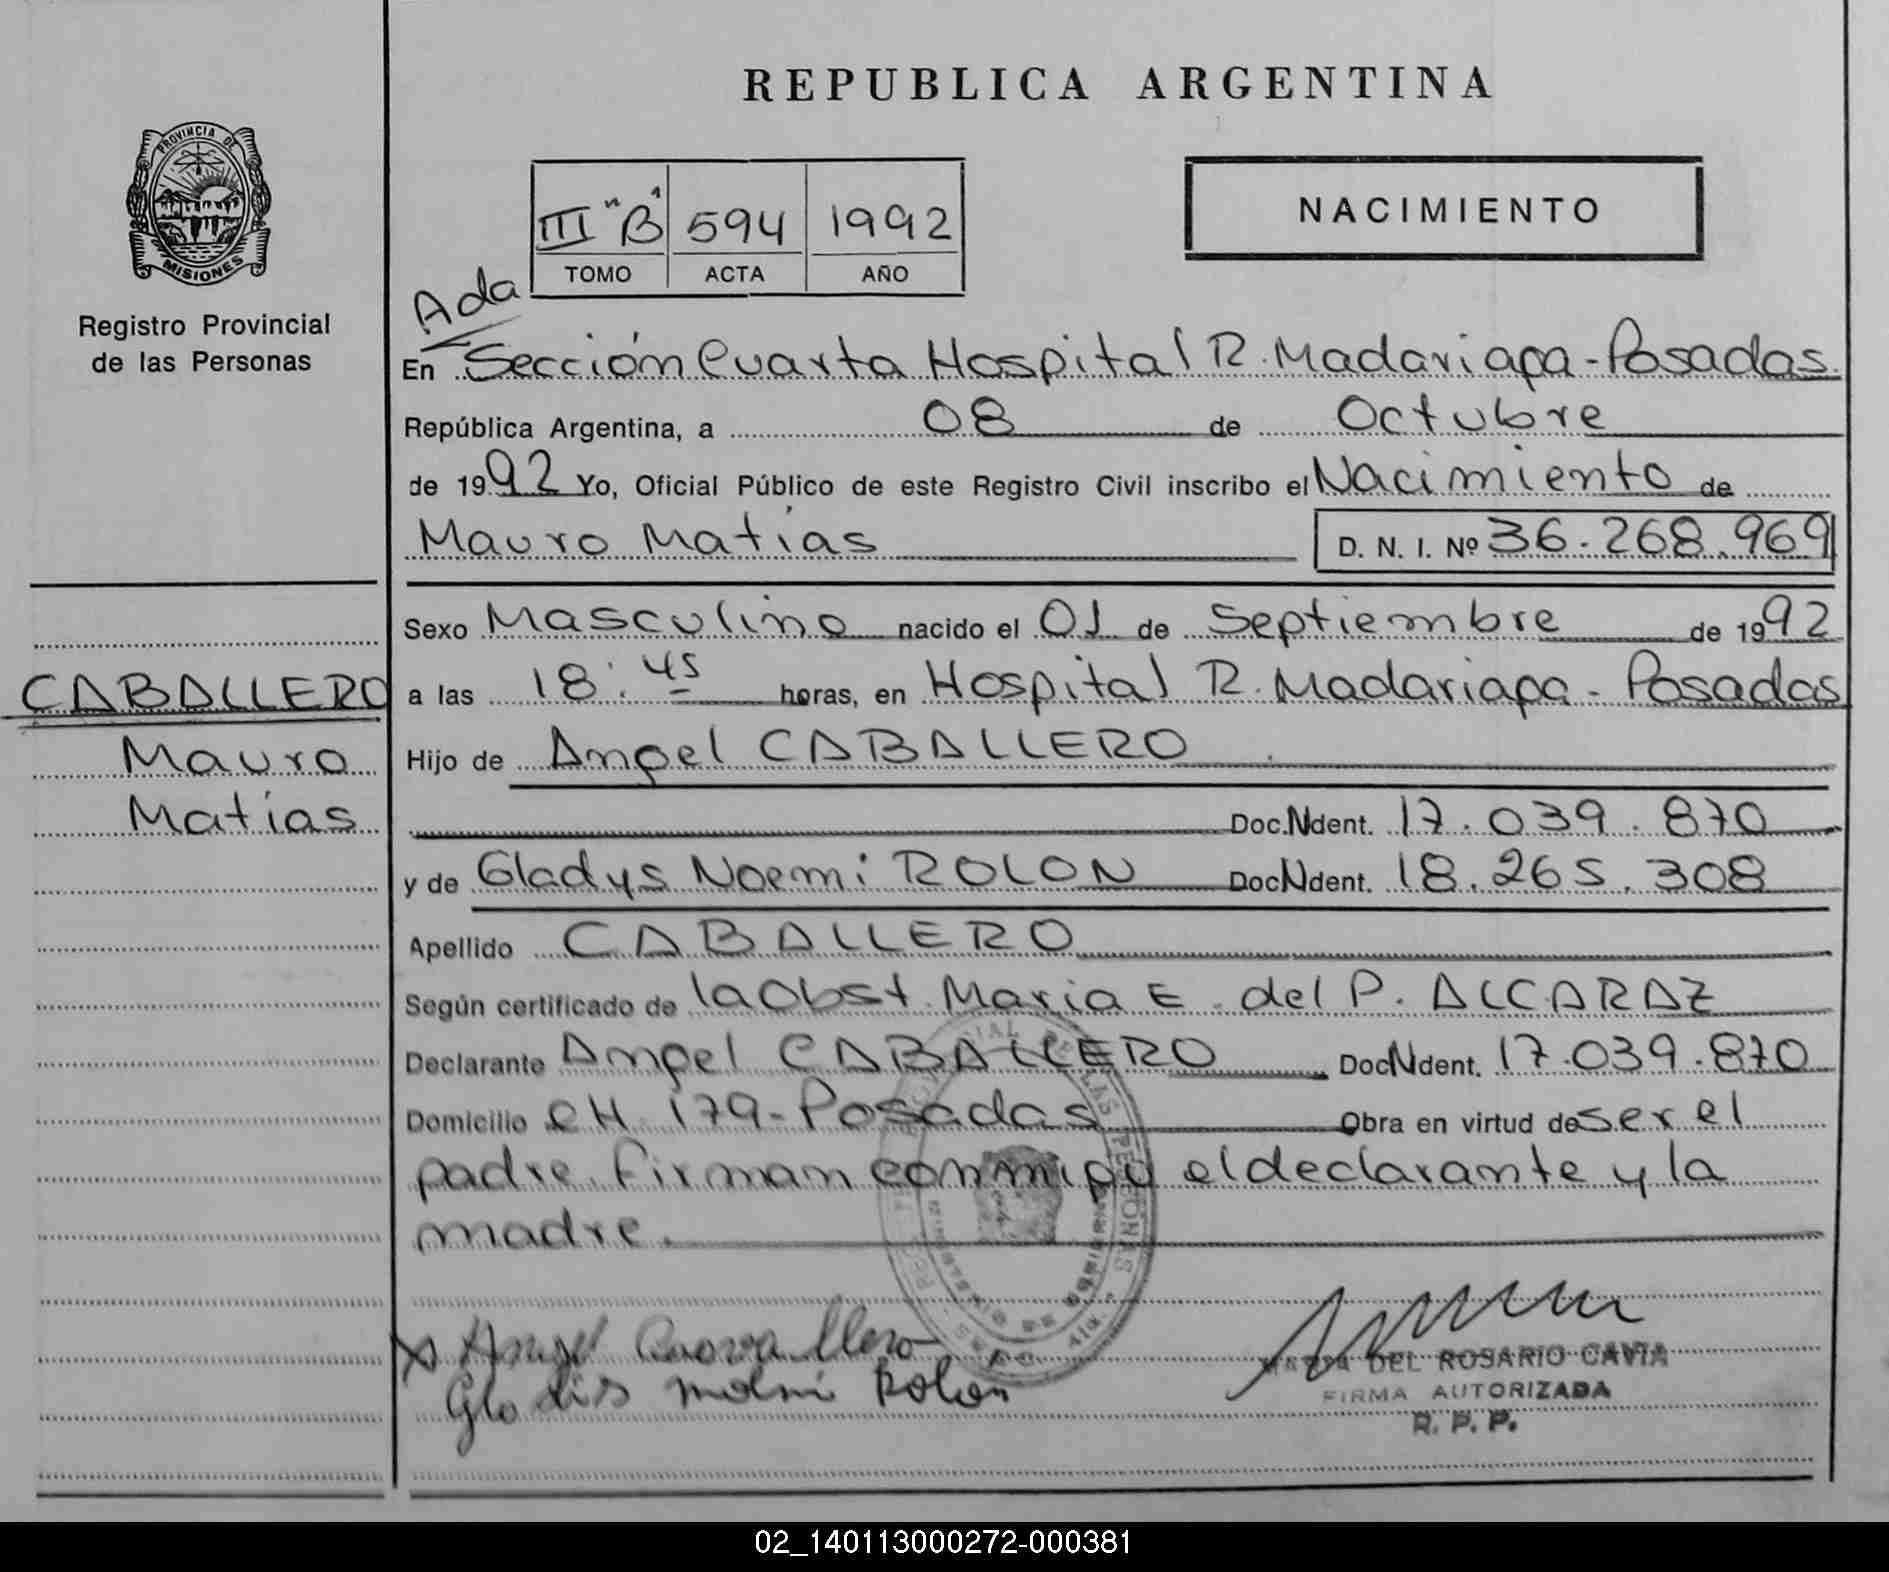 REPUBLICA ARGENTINA
PROVINCIA DE
MISIONES
Registro Provincial
de las Personas
III "B" 594 1992
TOMO ACTA AÑO
NACIMIENTO
Ada
En Sección Cuarta Hospital R. Madariaga - Posadas.
República Argentina, a 08 de Octubre
de 1992 Yo, Oficial Público de este Registro Civil inscribo el Nacimiento de
Mauro Matias D. N. I. Nº 36.268.969
Sexo Masculino nacido el 01 de Septiembre de 1992
CABALLERO
Mauro
Matías
a las 18:45 horas, en Hospital R. Madariaga - Posadas
Hijo de Angel CABALLERO
Doc.Ndent. 17.039.870
y de Gladys Noemi ROLON DocNdent. 18.265.308
Apellido CABALLERO
Según certificado de la Obst. Maria E. del P. ALCARAZ
Declarante Angel CABALLERO DocNdent. 17.039.870
Domicilio CH. 179 - Posadas Obra en virtud de ser el
padre. Firman conmigo el declarante y la
madre.
Angel
Rolon
DEL ROSARIO CAVIA
FIRMA AUTORIZADA
R. P. P.
02_140113000272-000381